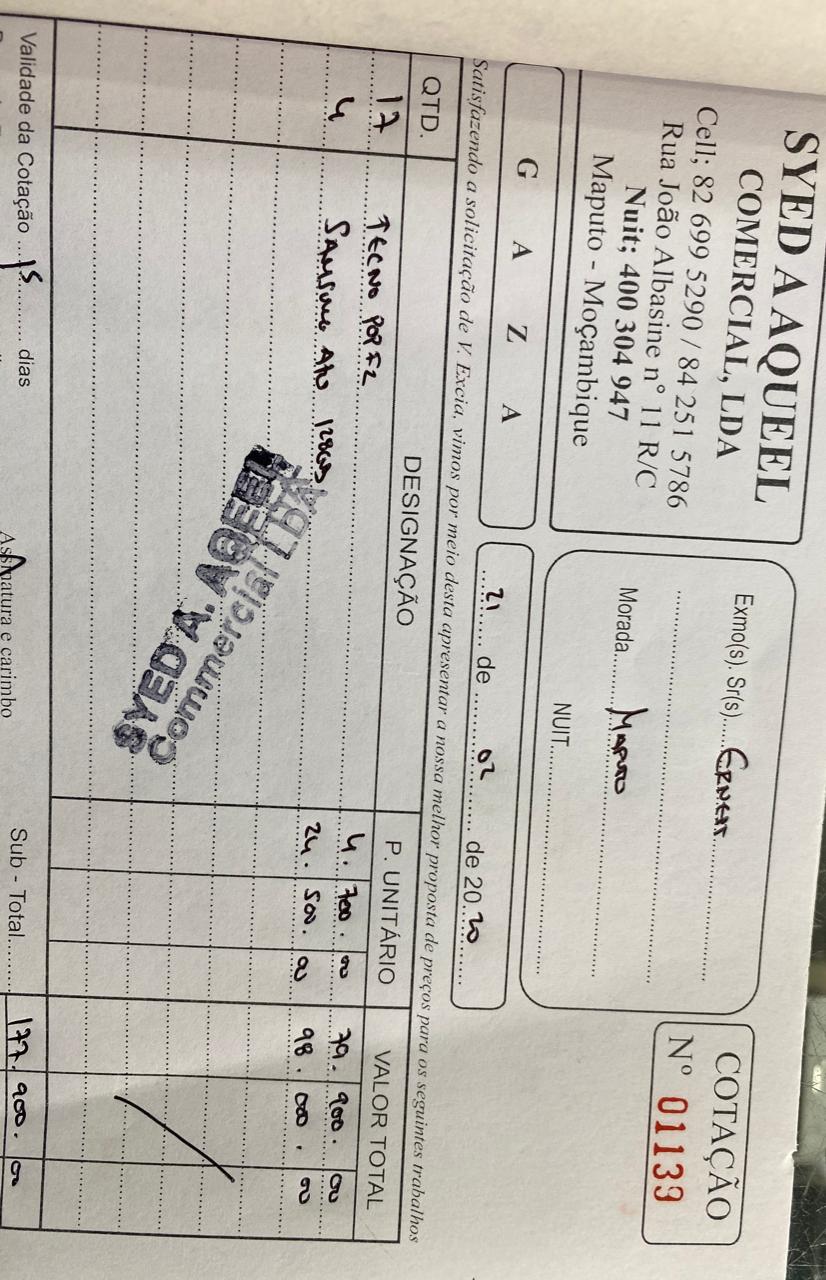 SYED A AQUEEL
COMERCIAL, LDA
Cell; 82 699 5290 / 84 251 5786
Rua João Albasine nº 11 R/C
Nuit; 400 304 947
Maputo - Moçambique
Exmo(s). Sr(s). Ernest
Morada. Maputo
NUIT
COTAÇÃO
Nº 01139
G A Z A
21 de 02 de 2020
Satisfazendo a solicitação de V. Excia, vimos por meio desta apresentar a nossa melhor proposta de preços para os seguintes trabalhos
QTD. DESIGNAÇÃO P. UNITÁRIO VALOR TOTAL
17 TECNO POP F2 4.700.00 79.900.00
4 SAMSUNG A70 128GB 24.500.00 98.000.00
SYED A. AQEEL
Commercial LDA
Validade da Cotação 15 dias
Assinatura e carimbo
Sub - Total 177.900.00